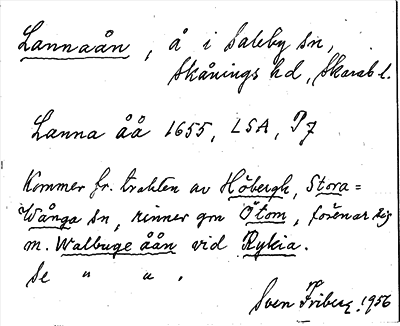 Lannaån, å i Saleby sn,
Skånings hd, Skarab l.
Lanna åå 1655, LSA, P7
Kommer fr. trakten av Höbergh, Stora=
Wånga sn, rinner gm Ötom, förenar sig
m. Walbuge åån vid Rykia.
Se " " .
Sven Friberg. 1956